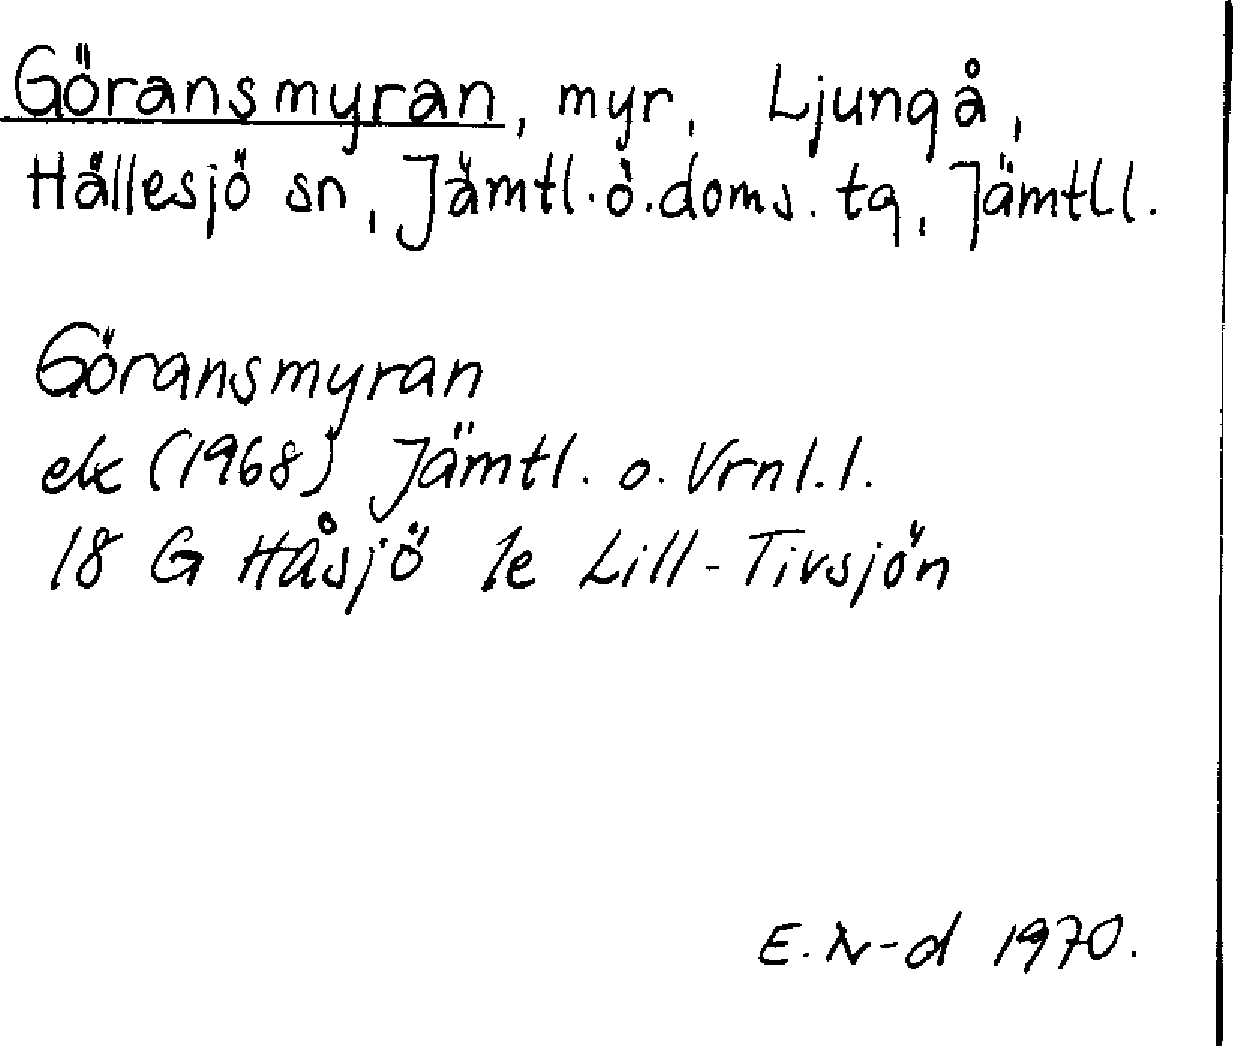 Göransmyran, myr, Ljungå,
Hällesjö sn, Jämtl. ö. doms. tg, Jämtl l.
Göransmyran
ek (1968) Jämtl. o. Vrnl. l.
18 G Håsjö 1e Lill-Tivsjön
E. N-d 1970.